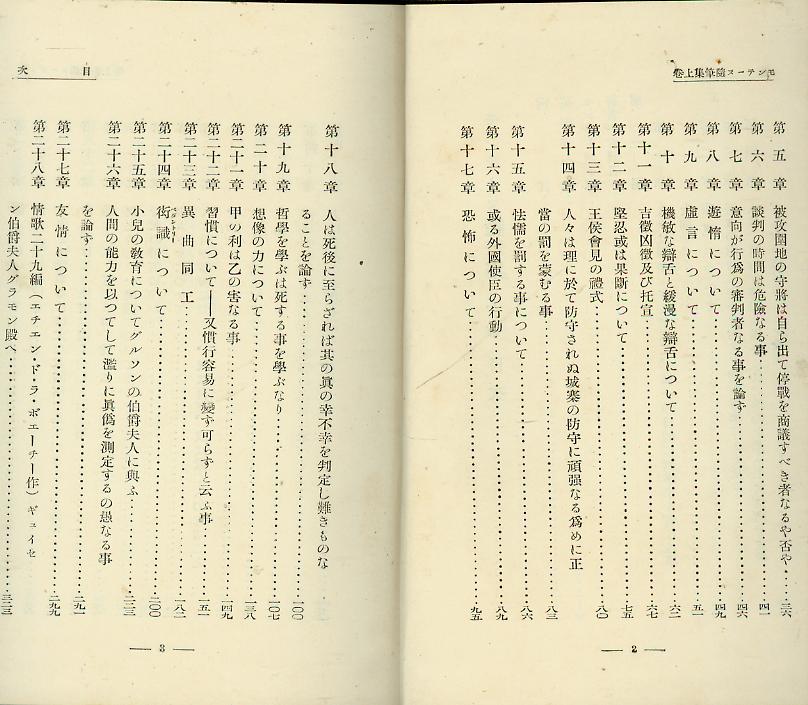 モンテーヌ隨筆集上卷
第五章 被攻圍地の守將は自ら出て停戰を商議すべき者なるや否や……三六
第六章 談判の時間は危險なる事……四一
第七章 意向が行爲の審判者なる事を論ず……四六
第八章 遊惰について……四九
第九章 虛言について……五一
第十章 機敏な辯舌と緩漫な辯舌について……六二
第十一章 吉徵凶徵及び托宣……六七
第十二章 堅忍或は果斷について……七五
第十三章 王侯會見の禮式……八〇
第十四章 人々は理に於て防守されぬ城寨の防守に頑强なる爲めに正
當の罰を蒙むる事……八三
第十五章 怯懦を罰する事について……八六
第十六章 或る外國使臣の行動……八九
第十七章 恐怖について……九五
2
目次
第十八章 人は死後に至らざれば其の眞の幸不幸を判定し難きものな
ることを論ず……一〇〇
第十九章 哲學を學ぶは死する事を學ぶなり……一〇七
第二十章 想像の力について……一三八
第二十一章 甲の利は乙の害なる事……一四九
第二十二章 習慣について——又慣行容易に變ず可らずと云ふ事……一五一
第二十三章 異曲同工……一八二
第二十四章 衒識について……二〇〇
ペダントリー
第二十五章 小兒の敎育についてグルソンの伯爵夫人に與ふ……二二三
第二十六章 人間の能力を以つてして濫りに眞僞を測定するの愚なる事
を論ず……二九一
第二十七章 友情について……二九九
第二十八章 情歌二十九編（エチエン・ド・ラ・ボエーチー作）ギュイセ
ン伯爵夫人グラモン殿へ……三二三
3